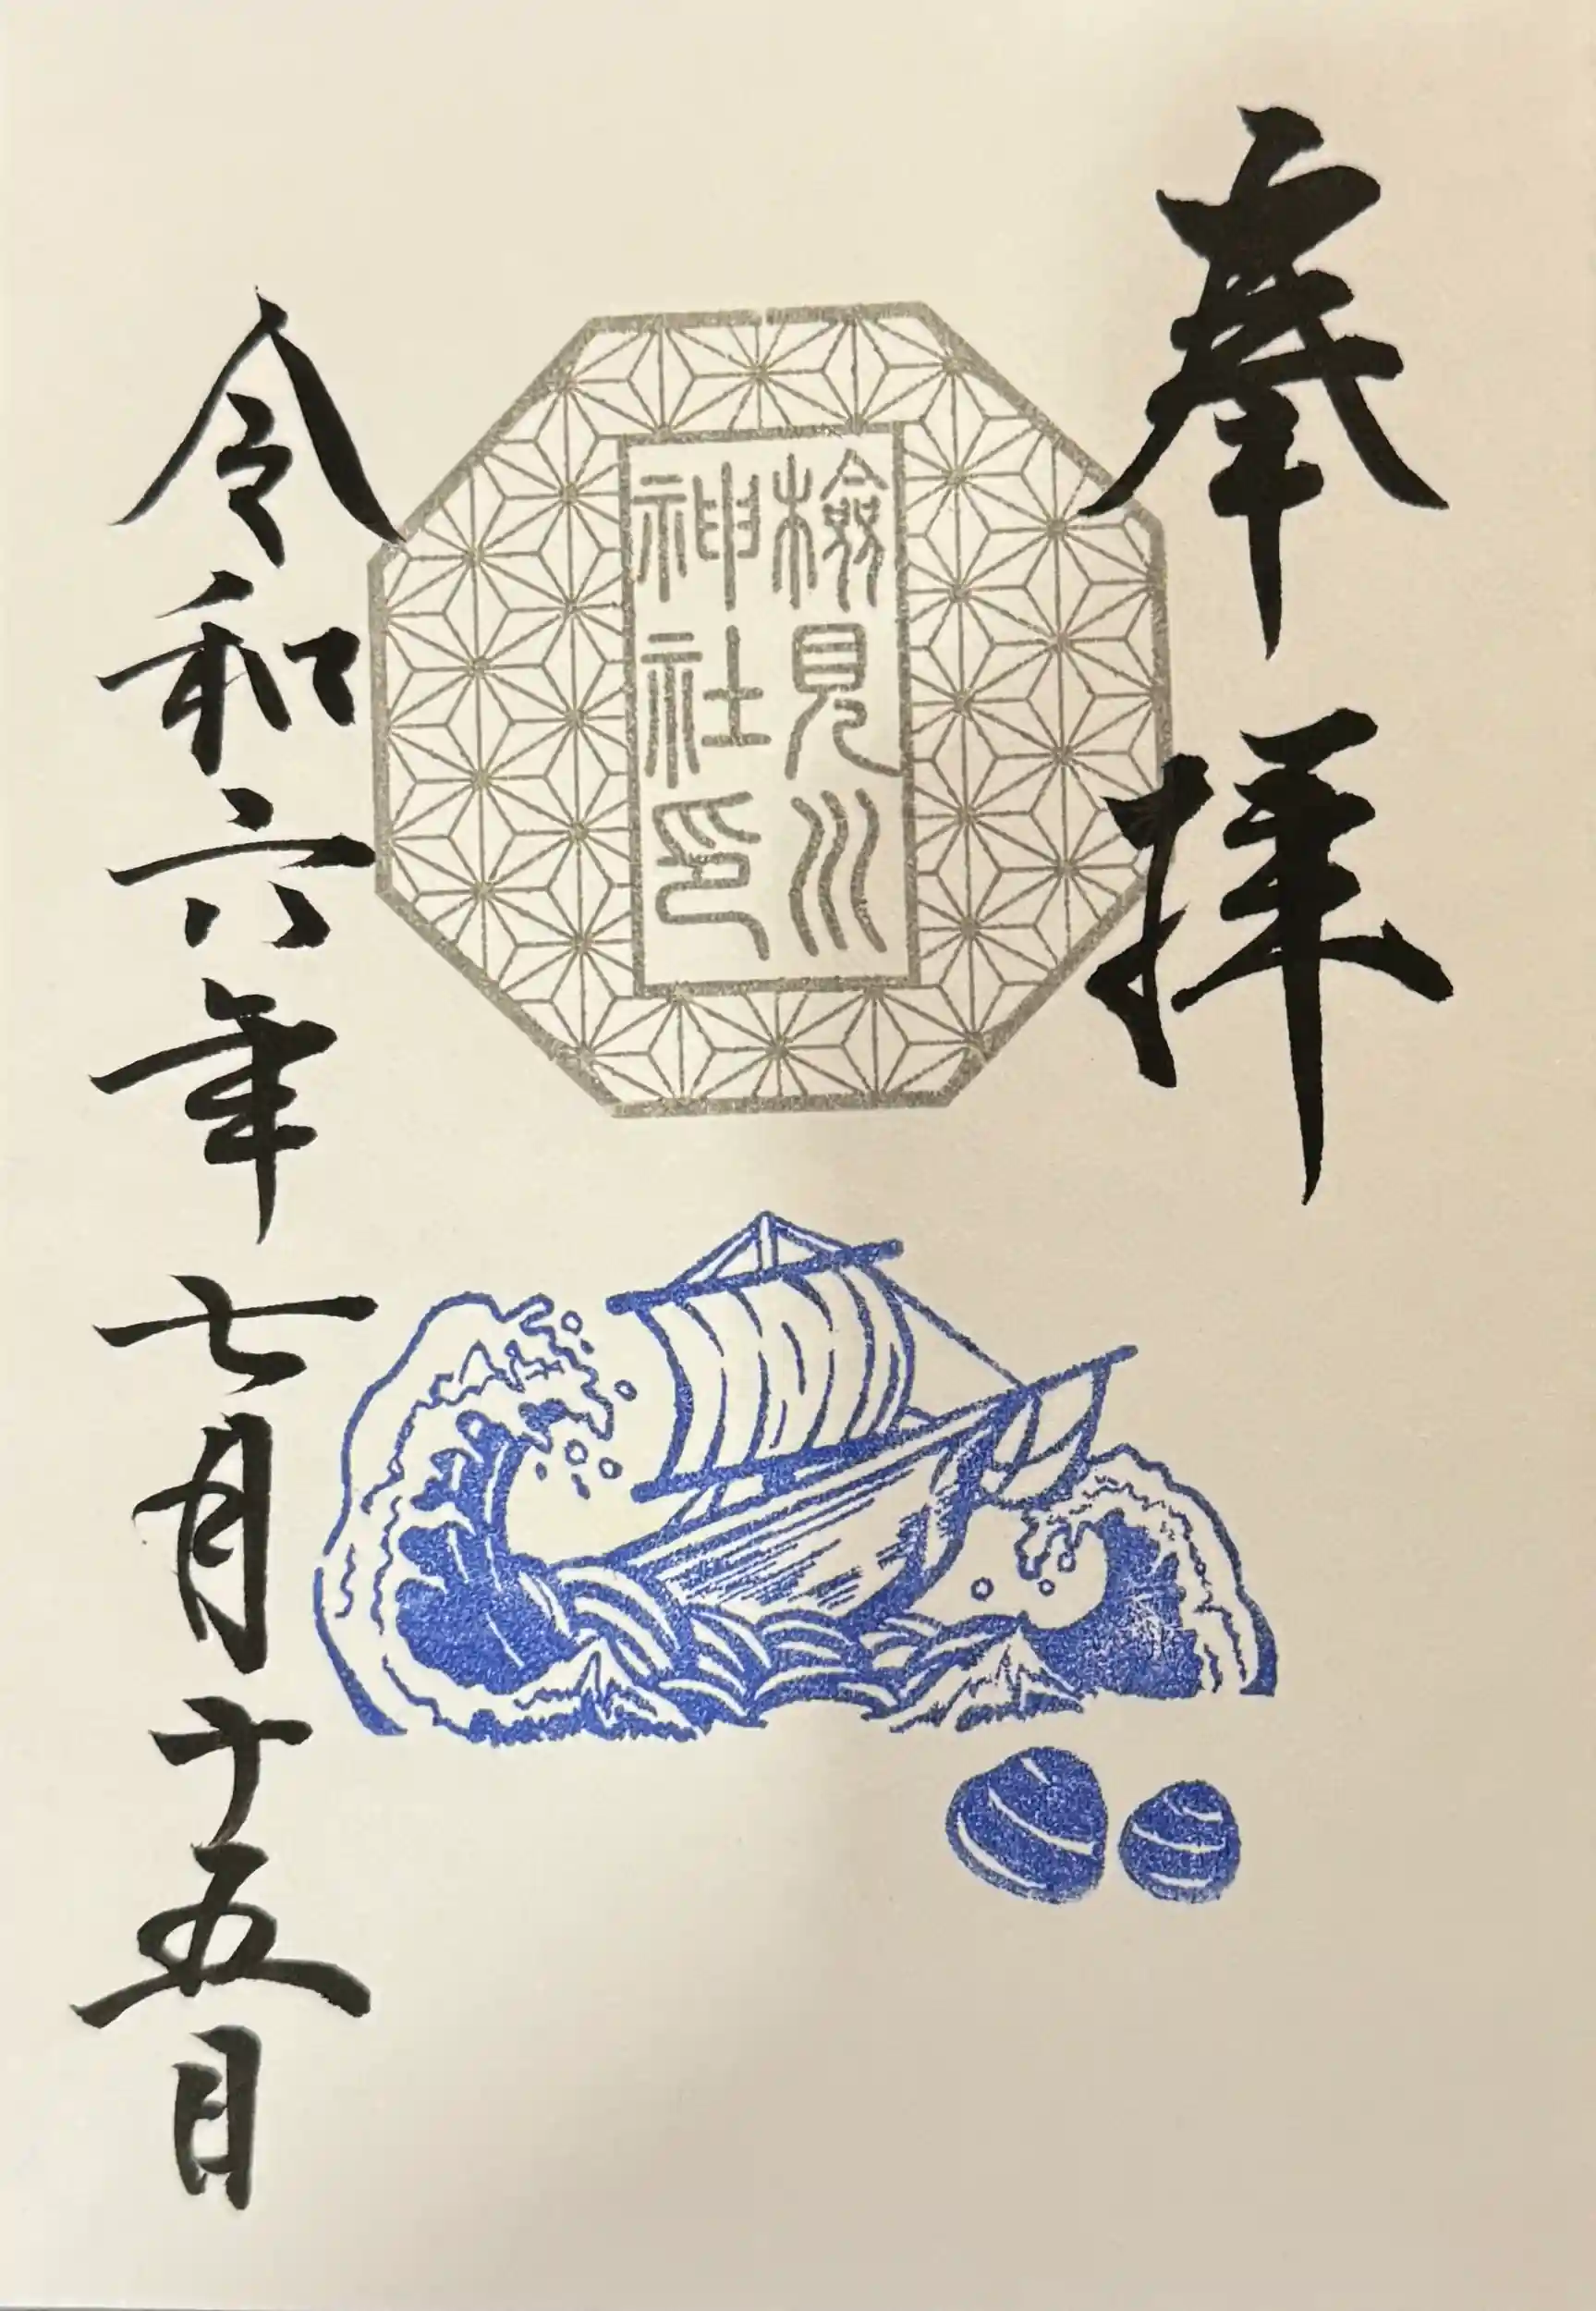 奉拝
檢見川
神社印
令和六年七月十五日